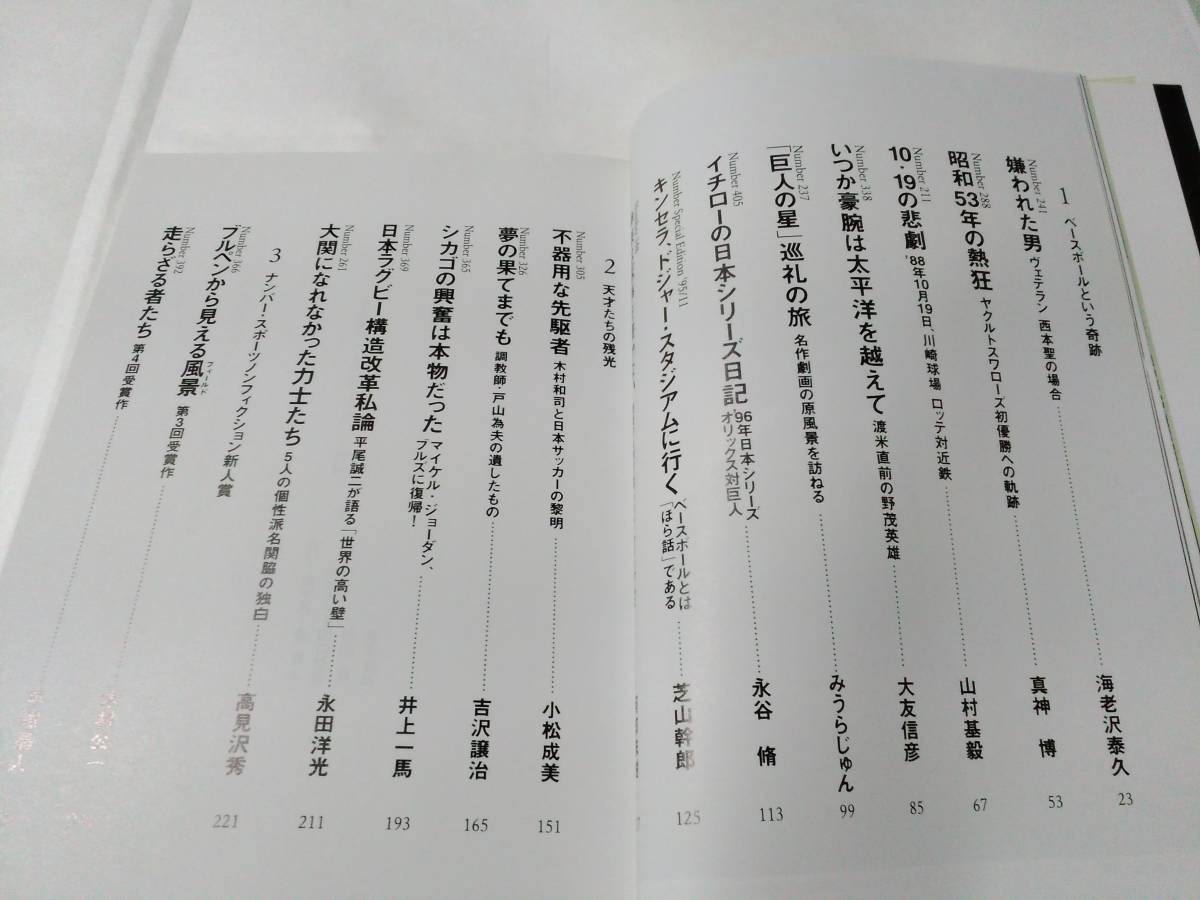 1 ベースボールという奇跡
Number 241
嫌われた男 ヴェテラン 西本聖の場合 海老沢泰久 23
Number 288
昭和53年の熱狂 ヤクルトスワローズ初優勝への軌跡 真神 博 53
Number 211
10・19の悲劇 '88年10月19日、川崎球場 ロッテ対近鉄 山村基毅 67
Number 338
いつか豪腕は太平洋を越えて 渡米直前の野茂英雄 大友信彦 85
Number 237
「巨人の星」巡礼の旅 名作劇画の原風景を訪ねる みうらじゅん 99
Number 405
イチローの日本シリーズ日記 '96年日本シリーズ オリックス対巨人 永谷 脩 113
Number Special Edition '95/11
キンセラ、ドジャー・スタジアムに行く ベースボールとは「ほら話」である 芝山幹郎 125
2 天才たちの残光
Number 305
不器用な先駆者 木村和司と日本サッカーの黎明 小松成美 151
Number 326
夢の果てまでも 調教師・戸山為夫の遺したもの 吉沢譲治 165
Number 365
シカゴの興奮は本物だった マイケル・ジョーダン、ブルズに復帰! 井上一馬 193
Number 369
日本ラグビー構造改革私論 平尾誠二が語る「世界の高い壁」 永田洋光 211
Number 261
大関になれなかった力士たち 5人の個性派名関脇の独白 高見沢秀 221
3 ナンバー・スポーツノンフィクション新人賞
Number 366
ブルペンから見える風景 フィールド 第3回受賞作
Number 392
走らざる者たち 第4回受賞作